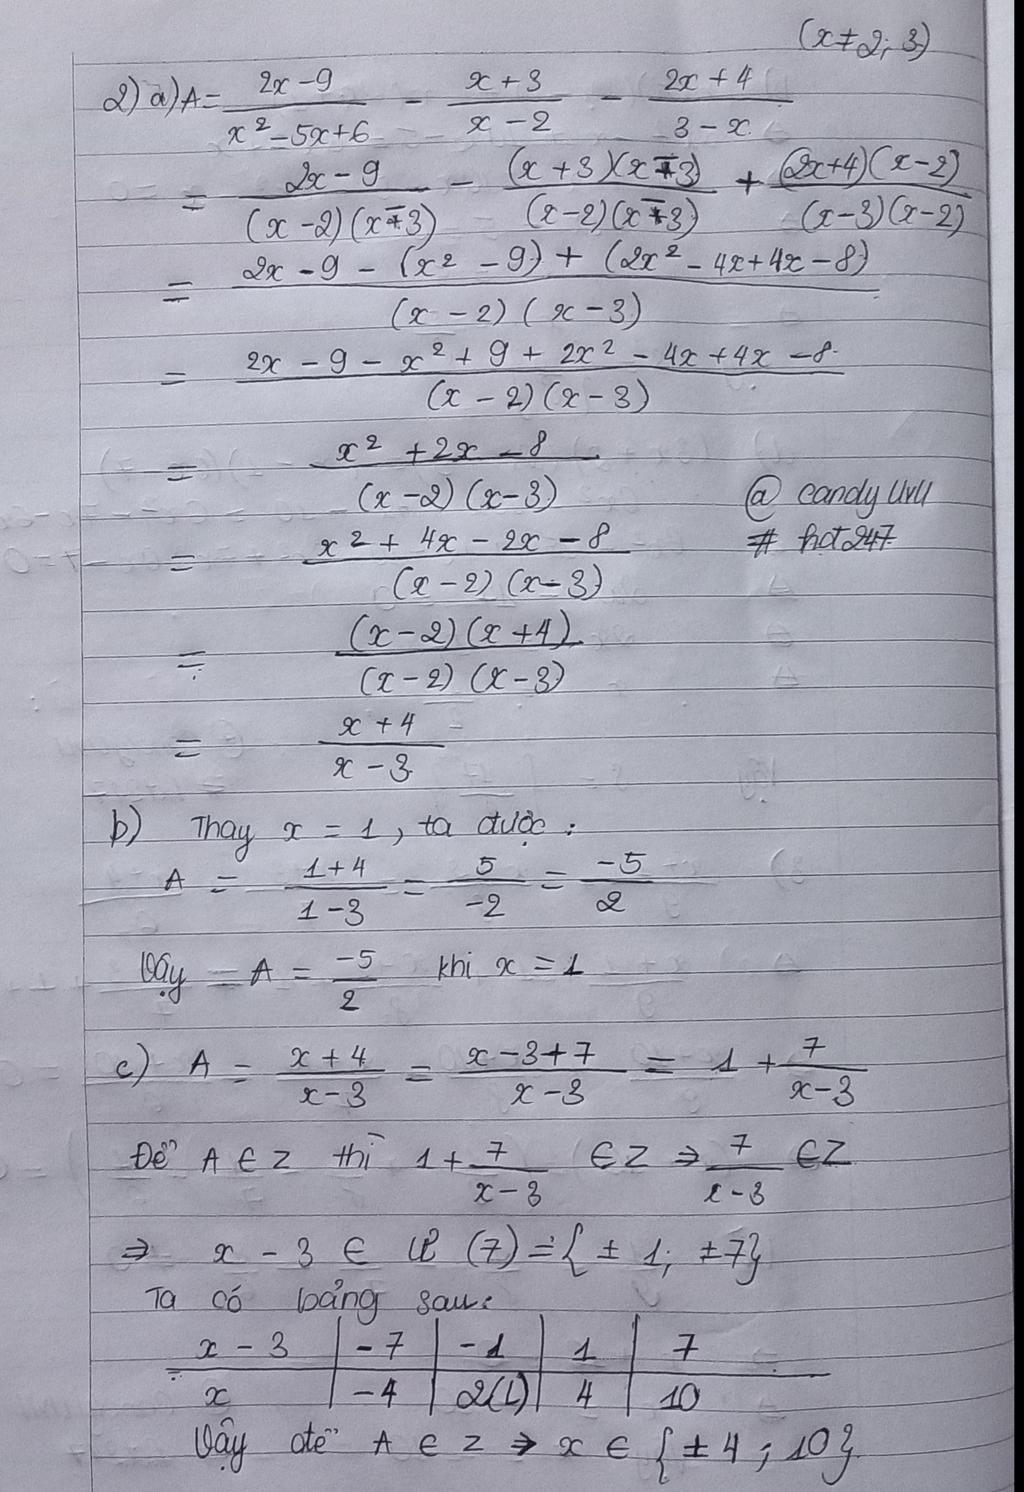 (x ≠ 2; 3)
2) a) A = (2x - 9)/(x² - 5x + 6) - (x + 3)/(x - 2) - (2x + 4)/(3 - x)
= (2x - 9)/((x - 2)(x - 3)) - ((x + 3)(x - 3))/((x - 2)(x - 3)) + ((2x + 4)(x - 2))/((x - 3)(x - 2))
= (2x - 9 - (x² - 9) + (2x² - 4x + 4x - 8))/((x - 2)(x - 3))
= (2x - 9 - x² + 9 + 2x² - 4x + 4x - 8)/((x - 2)(x - 3))
= (x² + 2x - 8)/((x - 2)(x - 3))
@ candyUvU
# hot247
= (x² + 4x - 2x - 8)/((x - 2)(x - 3))
= ((x - 2)(x + 4))/((x - 2)(x - 3))
= (x + 4)/(x - 3)
b) Thay x = 1, ta được:
A = (1 + 4)/(1 - 3) = 5/-2 = -5/2
Vậy A = -5/2 khi x = 1
c) A = (x + 4)/(x - 3) = (x - 3 + 7)/(x - 3) = 1 + 7/(x - 3)
Để A ∈ Z thì 1 + 7/(x - 3) ∈ Z ⇒ 7/(x - 3) ∈ Z
⇒ x - 3 ∈ Ư (7) = {± 1; ±7}
Ta có bảng sau:
x - 3 | -7 | -1 | 1 | 7
x | -4 | 2(L) | 4 | 10
Vậy để A ∈ Z ⇒ x ∈ {± 4; 10}